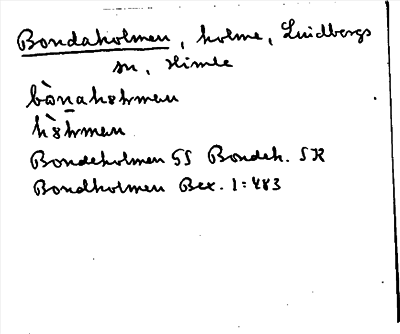 Bondaholmen, holme, Lindbergs
sn, Himle
bòna hółmen
hòłmen
Bondeholmen GS Bondeh. SK
Bondholmen Bex. 1:483